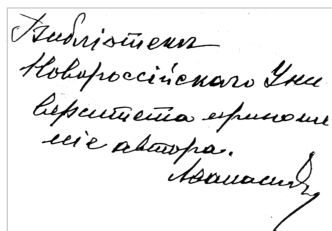 Библіотекѣ
Новороссійскаго Уни
верситета приноше
ніе автора.